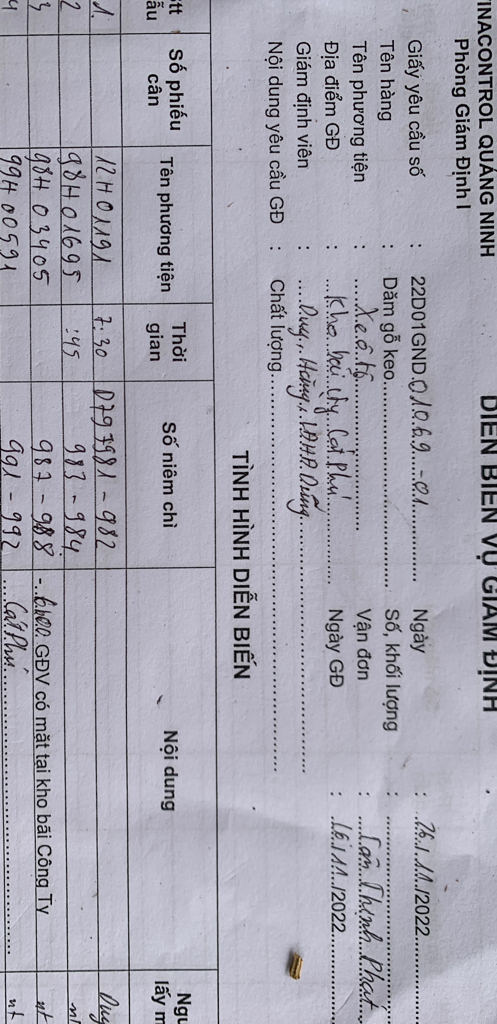 VINACONTROL QUẢNG NINH
Phòng Giám Định I
DIỄN BIẾN VỤ GIÁM ĐỊNH
Giấy yêu cầu số : 22D01GND.01069-01 Ngày : 26/11/2022
Tên hàng : Dăm gỗ keo Số, khối lượng :
Tên phương tiện : Xe ô tô Vận đơn : Tân Thịnh Phát
Địa điểm GĐ : Kho bãi Cty Cát Phú Ngày GĐ : /11/2022
Giám định viên : Duy, Hùng,
Nội dung yêu cầu GĐ : Chất lượng
TÌNH HÌNH DIỄN BIẾN
Stt mẫu Số phiếu cân Tên phương tiện Thời gian Số niêm chì Nội dung
1. 12H01191 7:30 D797981-982 Duy
2 98H01695 :45 983-984 nt
3 98H03405 987-988 - GĐV có mặt tại kho bãi Công Ty nt
4 99H00591 991-992 Cát Phú nt